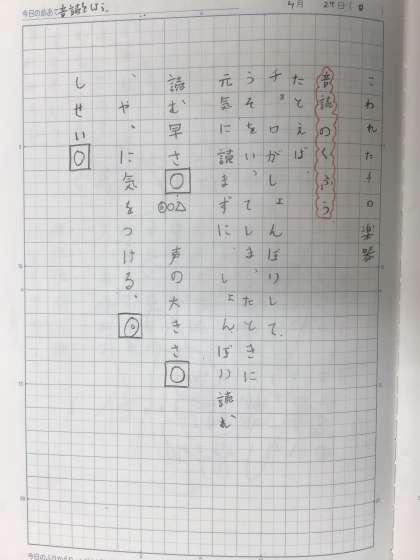 今日のめあて 音読をしよう。 4月 24日(
こわれた千の楽器
音読のくふう
たとえば、
チェロがしょんぼりして、
うそをいってしまったときに
元気に読まずにしょんぼり読む。
読む早さ○ ◎○△ 声の大きさ○
、や。に気をつける。◎
しせい○
今日のふりかえり